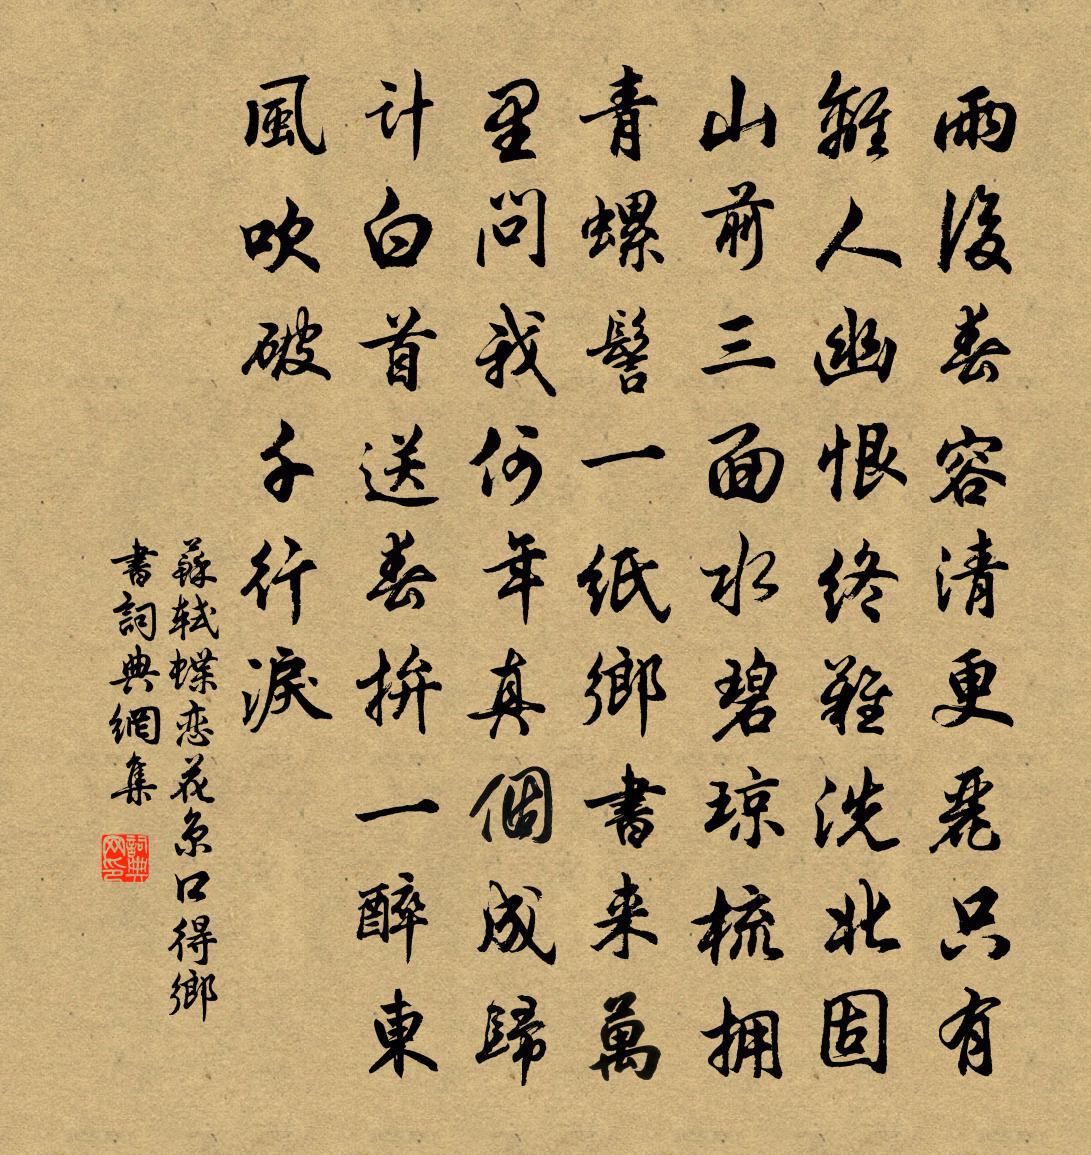 雨後春容清更麗只有
離人幽恨終難洗北固
山前三面水碧琼梳拥
青螺髻一紙鄉書来萬
里問我何年真個成歸
计白首送春拚一醉東
風吹破千行淚
蘇軾蝶恋花京口得鄉
書詞典網集
詞典网印